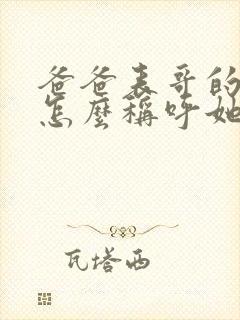 爸爸表哥的
怎麼稱呼她
瓦塔西